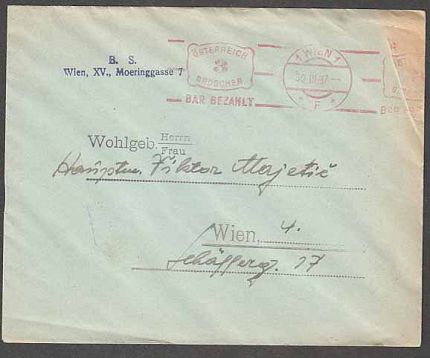 B. S.
Wien, XV., Moeringgasse 7
ÖSTERREICH
3
GROSCHEN
BAR BEZAHLT
1 WIEN 1
30.III.37.–
* F *
BAR
Wohlgeb. Herrn
Frau
Hauptm. Viktor Majetič
Wien, 4.
Schäfferg. 17